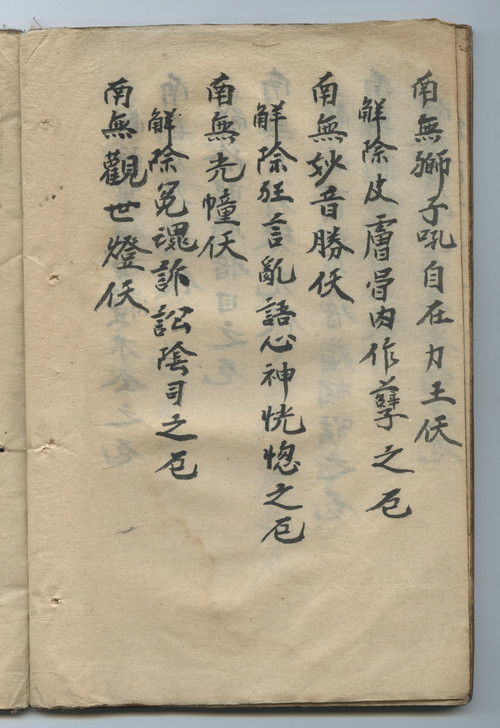 南無獅子吼自在力王仸
解除皮膚骨肉作孽之厄
南無妙音勝仸
解除狂言亂語心神恍惚之厄
南無光幢仸
解除冤魂訴訟陰司之厄
南無觀世燈仸